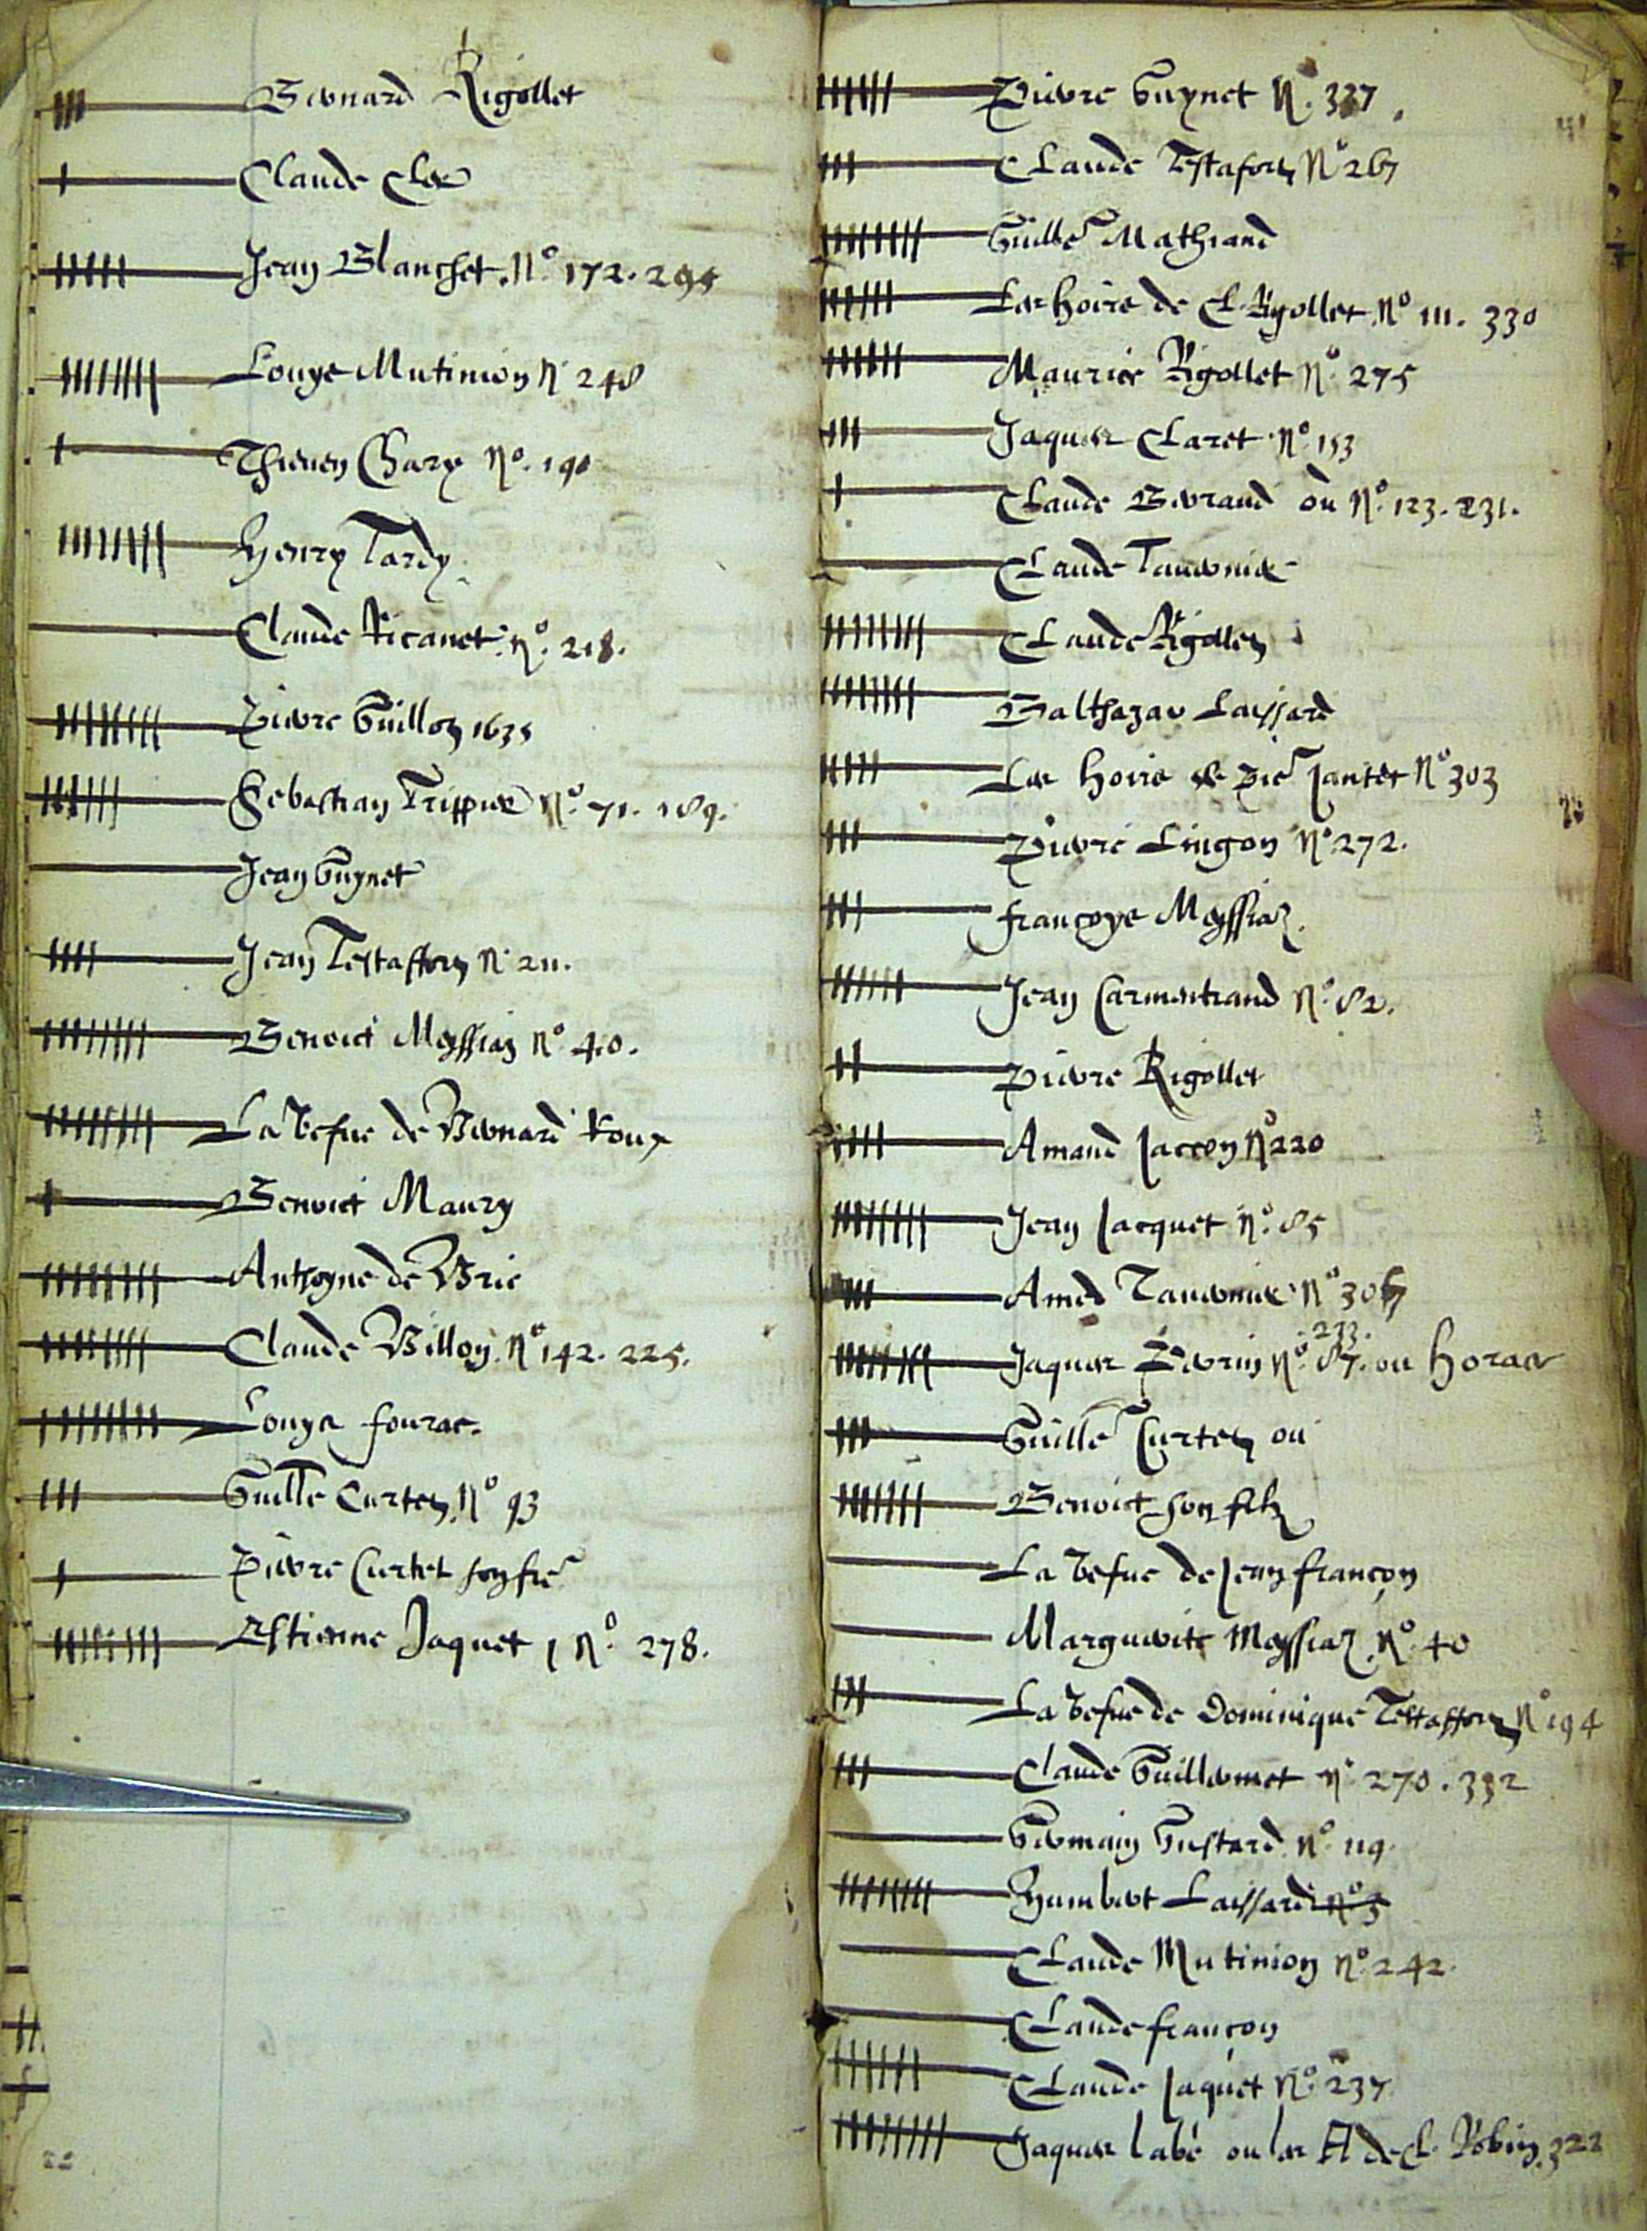 Bernard Rigollet
Claude Cler
Jean Blanchet. N° 172. 294
Louys Mutinion N° 248
Thieven Gary N°. 190
Henry Tardy
Claude Ricanet. N°. 218.
Pierre Guillon 1635
Sebastian Trippier N°. 71. 189.
Jean Guynet
Jean Testaffort N° 211.
Benoict Meyssiaz N° 40.
La vefue de Bernard Roux
Benoict Maury
Anthoyne de Brie
Claude Billon. N° 142. 225.
Louys fourac.
Guille Curtet. N° 93
Pierre Curtet son fre
Estienne Jaquet N°. 278.
Pierre Guynet N°. 337
Claude Testafort N° 267
Guille Mathiand
Les hoirs de Cl. Rigollet. N° 111. 330
Maurice Rigollet N°. 275
Jaques Claret N° 153
Claude Berraud ou N°. 123. 231.
Claude Tavernier
Claude Rigollet
Balthazar Laissard
Les hoirs de Pre Jantet N° 303
Pierre Lingon N° 272.
francoyse Meyssiaz.
Jean Carmentrand N°. 82.
Pierre Rigollet
Amand Jaccon N° 220
Jean Jacquet N°. 85
Amed Tavernier N° 306
Jaques Perrin N°. 87. 233. ou Horace
Guille Curtet ou
Benoict son filz
La vefue de Jean françon
Marguerite Meyssiaz. N°. 40
La vefue de Dominique Testaffort N° 194
Claude Guillermet N°. 270. 332
Germain Gustard. N°. 119.
Humbert Laissard N° 3
Claude Mutinion N°. 242.
Claude françon
Claude Jaquet N°. 237
Jaques Labé ou les H de Cl. Robin. 322